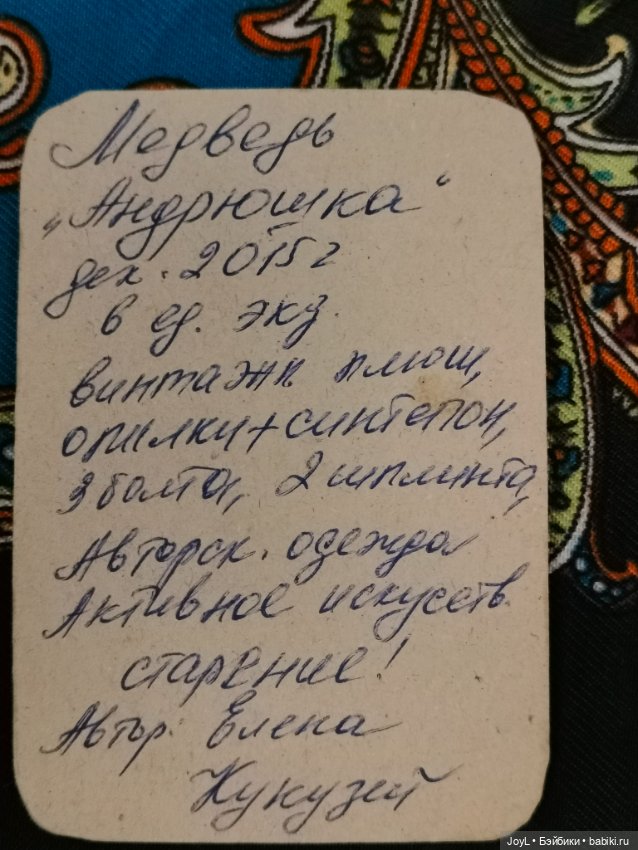 Медведь
„Андрюшка"
дек. 2015 г
в ед. экз.
винтажн плюш,
опилки+синтепон,
3 болта, 2 шплинта,
Авторск. одежда
Активное искусств.
старение!
Автор Елена
Кукузей
JoyL • Бэйбики • babiki.ru